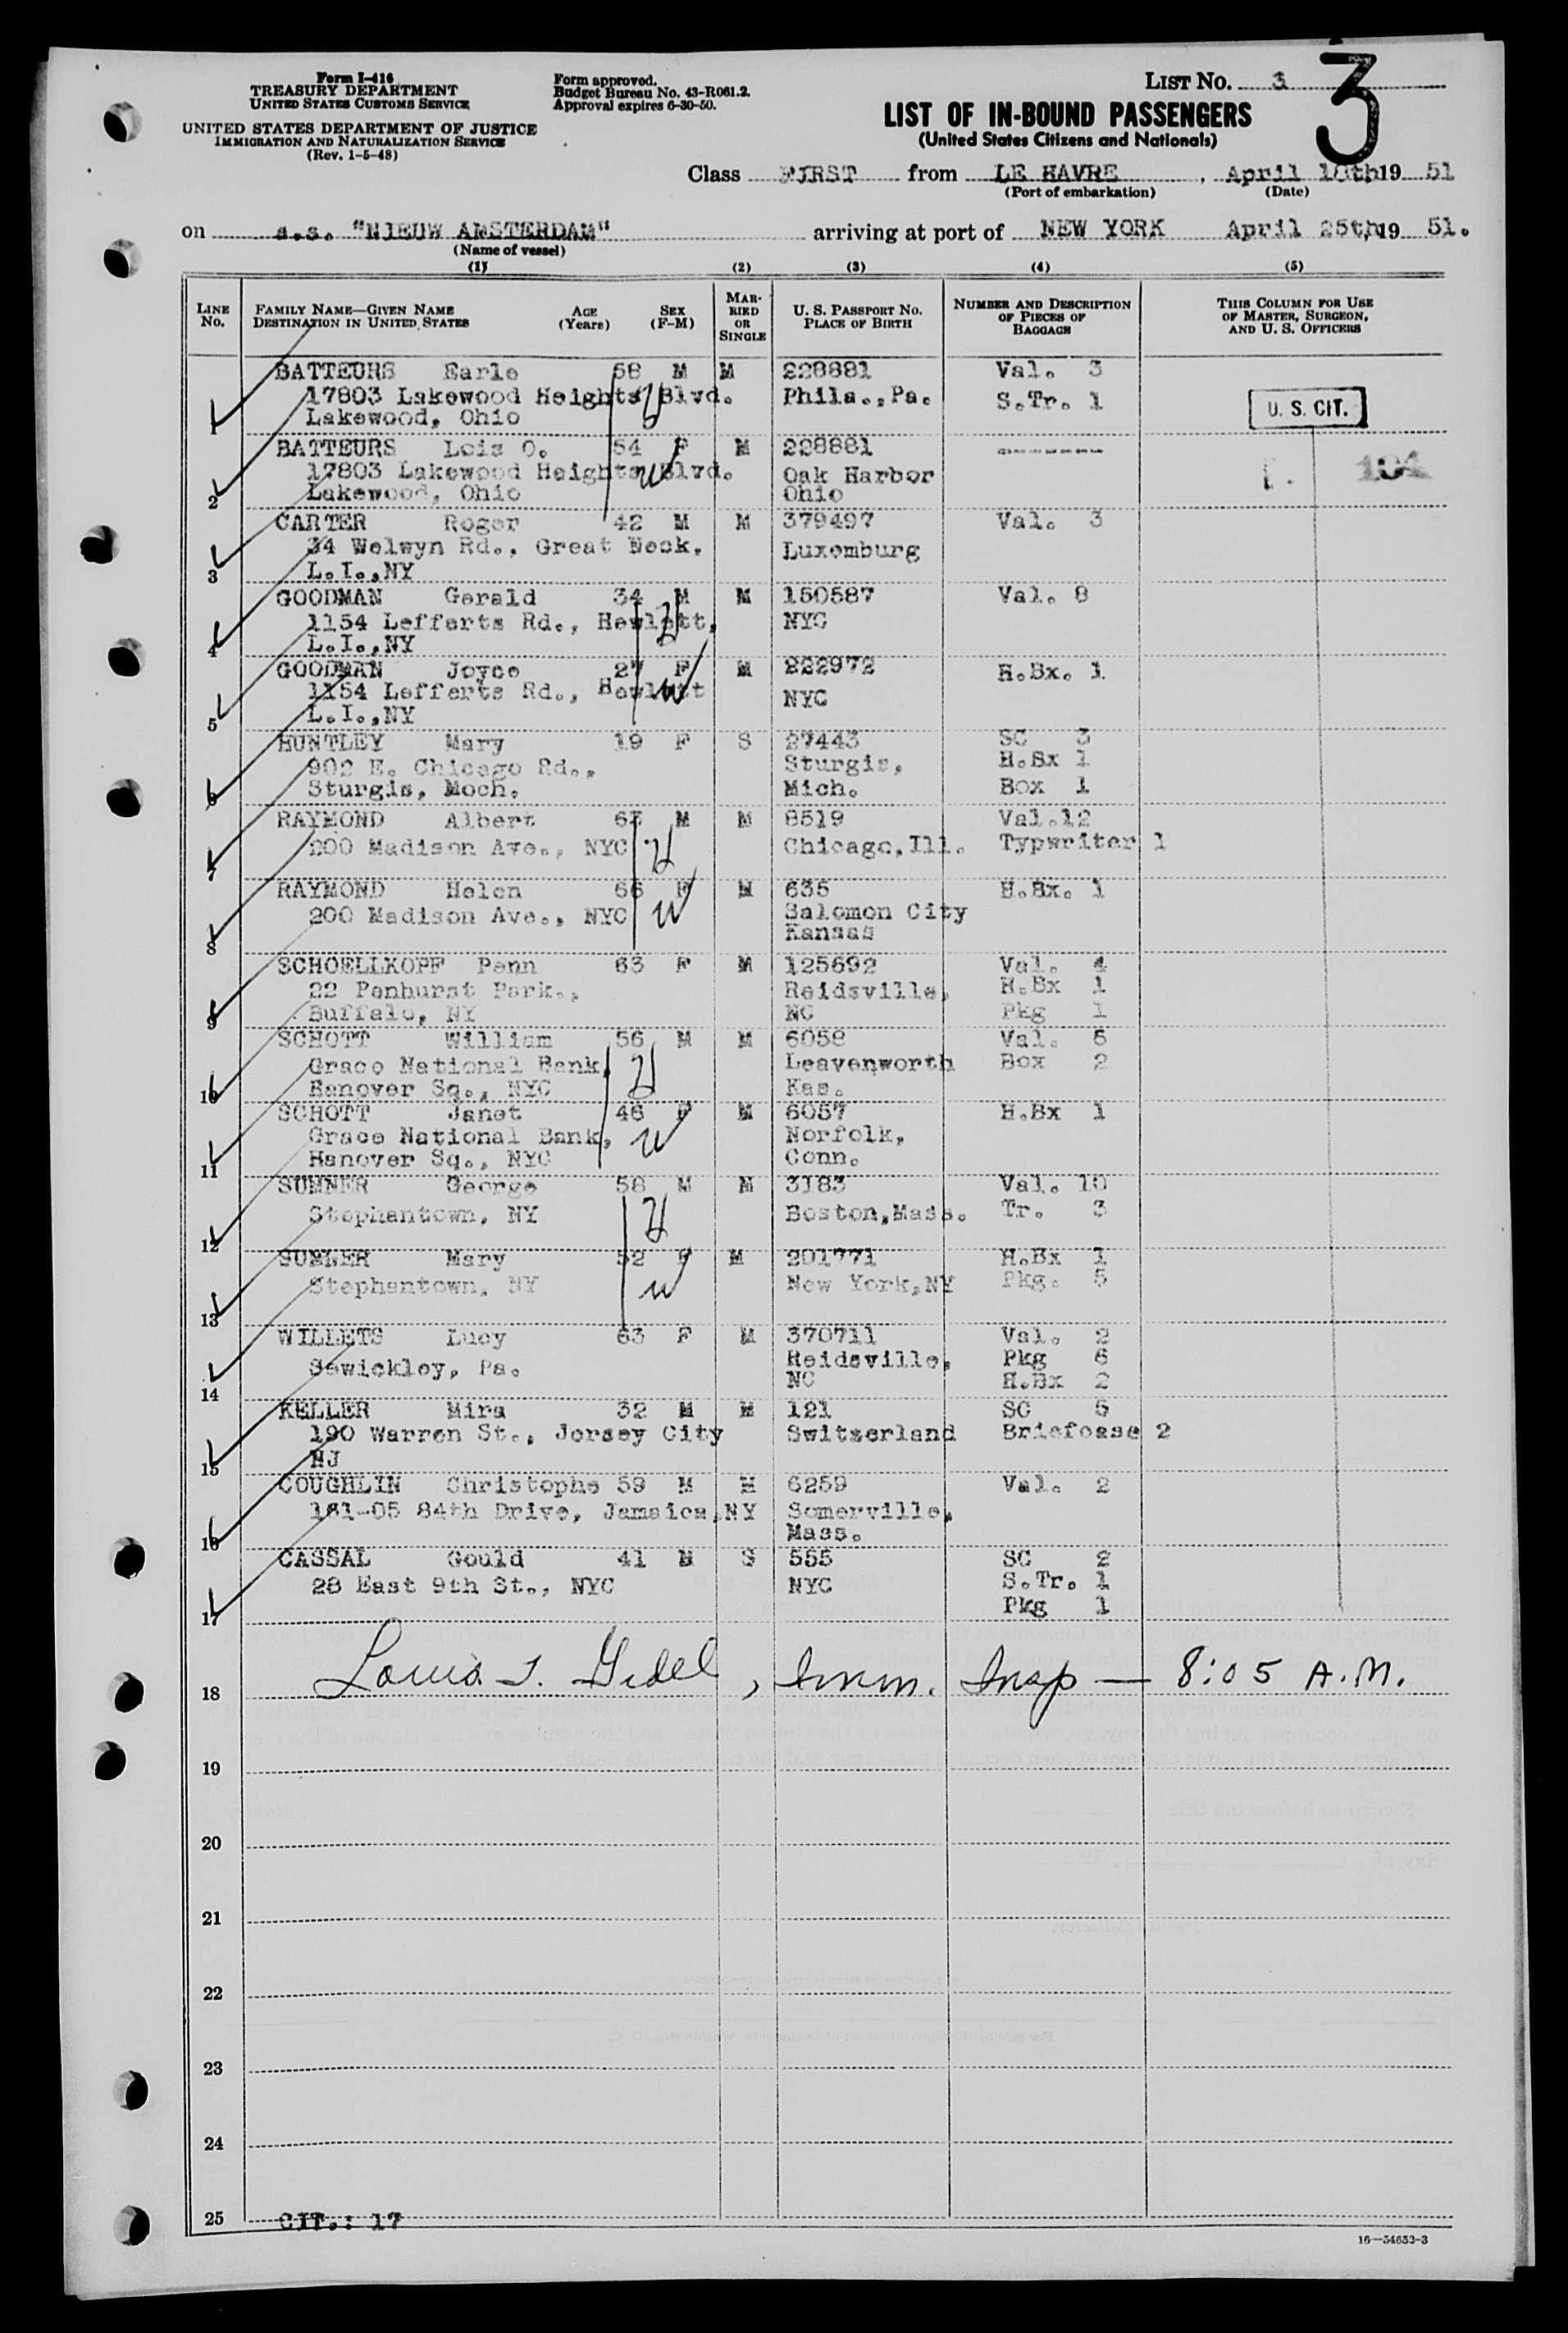 Form I-416
TREASURY DEPARTMENT
UNITED STATES CUSTOMS SERVICE
UNITED STATES DEPARTMENT OF JUSTICE
IMMIGRATION AND NATURALIZATION SERVICE
(Rev. 1-5-48)
Form approved.
Budget Bureau No. 43-R061.2.
Approval expires 6-30-50.
LIST No. 3
3
LIST OF IN-BOUND PASSENGERS
(United States Citizens and Nationals)
Class FIRST from LE HAVRE, April 18th 19 51
(Port of embarkation) (Date)
on s.s. "NIEUW AMSTERDAM" arriving at port of NEW YORK April 25th 19 51.
(Name of vessel)
(1) (2) (3) (4) (5)
LINE No. FAMILY NAME—GIVEN NAME DESTINATION IN UNITED STATES AGE (Years) SEX (F-M) MARRIED OR SINGLE U. S. PASSPORT No. PLACE OF BIRTH NUMBER AND DESCRIPTION OF PIECES OF BAGGAGE THIS COLUMN FOR USE OF MASTER, SURGEON, AND U. S. OFFICERS
BATTEURS Earle 58 M M 228881 Val. 3
17803 Lakewood Heights Blvd. Phila.,Pa. S.Tr. 1 U. S. CIT.
1 Lakewood, Ohio
BATTEURS Lois O. 54 F M 228881 -------
17803 Lakewood Heights Blvd. Oak Harbor
2 Lakewood, Ohio Ohio
CARTER Roger 42 M M 379497 Val. 3
34 Welwyn Rd., Great Neck, Luxemburg
3 L.I.,NY
GOODMAN Gerald 34 M M 150587 Val. 8
1154 Lefferts Rd., Hewlett, NYC
4 L.I.,NY
GOODMAN Joyce 27 F M 222972 H.Bx. 1
1154 Lefferts Rd., Hewlett NYC
5 L.I.,NY
HUNTLEY Mary 19 F S 27443 SC 3
902 E. Chicago Rd., Sturgis, H.Bx 1
6 Sturgis, Moch. Mich. Box 1
RAYMOND Albert M M 8519 Val.12
200 Madison Ave., NYC Chicago,Ill. Typwriter 1
7
RAYMOND Helen 66 F M 635 H.Bx. 1
200 Madison Ave., NYC Salomon City
8 Kansas
SCHOELLKOPF Penn 63 F M 125692 Val. 4
22 Penhurst Park., Reidsville, H.Bx 1
9 Buffalo, NY NC Pkg 1
SCHOTT William 56 M M 6058 Val. 6
Grace National Bank, Leavenworth Box 2
10 Hanover Sq., NYC Kas.
SCHOTT Janet 46 F M 6057 H.Bx 1
Grace National Bank, Norfolk,
11 Hanover Sq., NYC Conn.
SUMNER George 58 M M 3183 Val. 10
Stephantown, NY Boston,Mass. Tr. 3
12
SUMNER Mary 52 F M 201771 H.Bx 1
Stephantown, NY New York,NY Pkg. 5
13
WILLETS Lucy 63 F M 370711 Val. 2
Sewickley, Pa. Reidsville, Pkg 6
14 NC H.Bx 2
KELLER Mira 32 M M 121 SC 5
190 Warren St., Jersey City Switzerland Briefcase 2
15 NJ
COUGHLIN Christophe 59 M M 6259 Val. 2
161-05 84th Drive, Jamaica,NY Somerville,
16 Mass.
CASSAL Gould 41 M S 555 SC 2
28 East 9th St., NYC NYC S.Tr. 1
17 Pkg 1
18 Louis Gidel, Imm. Insp — 8:05 A.M.
19
20
21
22
23
24
25 CIT.: 17
16—54652-3